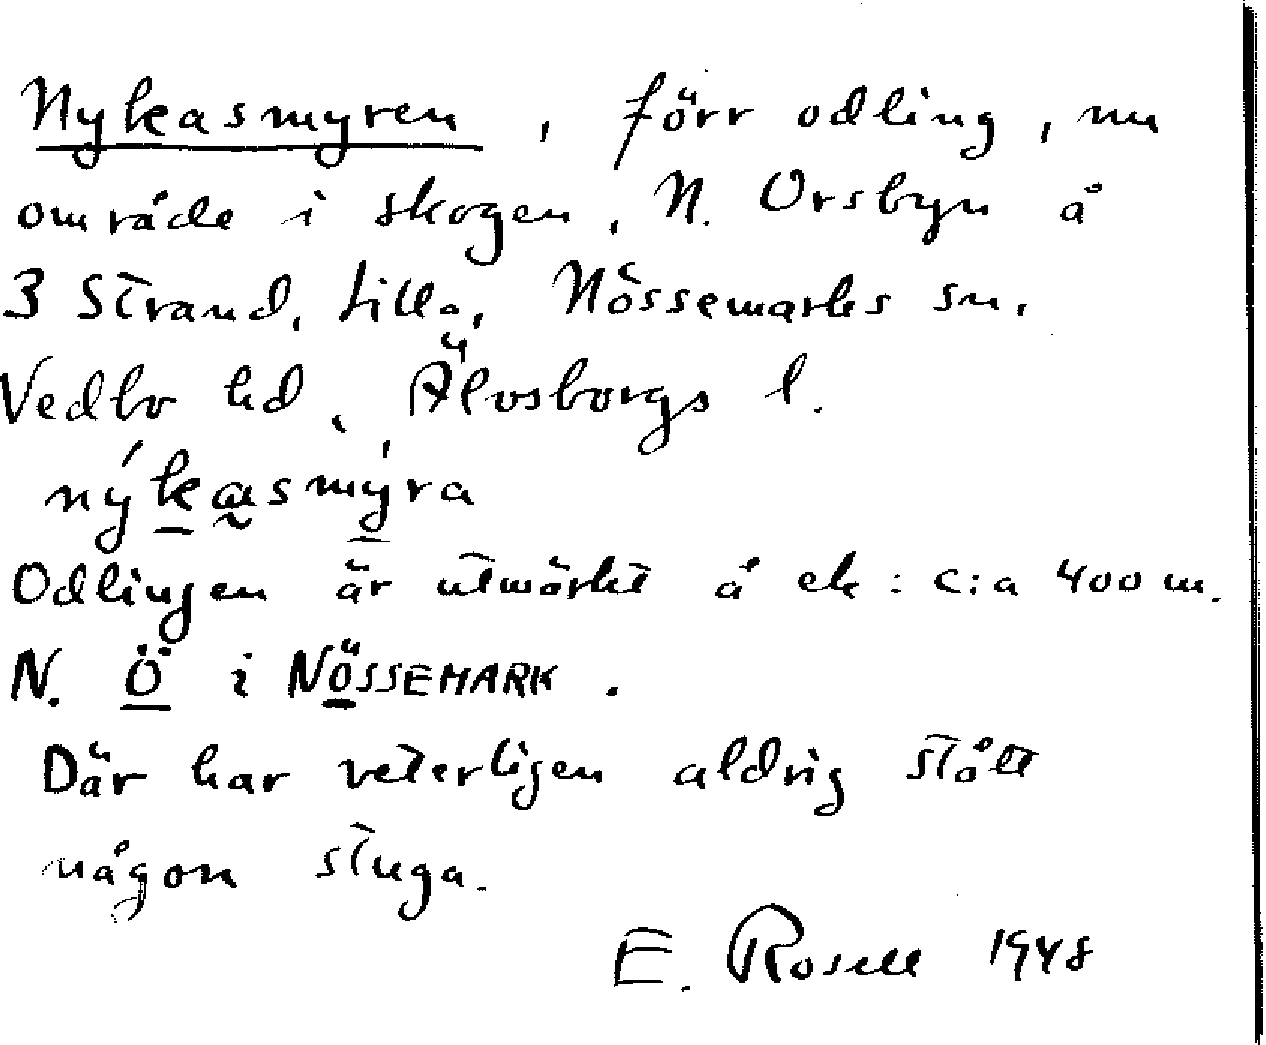 Nykasmyren, förr odling, nu
område i skogen, N. Orsbyn å
3 Strand, Lilla, Nössemarks sn,
Vedbo hd, Älvsborgs l.
nýkasmy̍ra
Odlingen är utmärkt å ek: c:a 400 m.
N. Ö i NÖSSEMARK.
Där har veterligen aldrig stått
någon stuga.
E. Rosell 1948